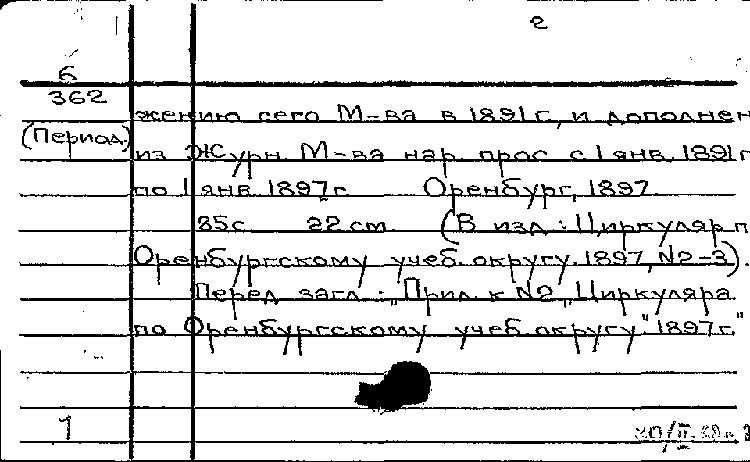 2
6
362
(Период.)
жению сего М-ва в 1891 г., и дополнен
из Журн. М-ва нар. прос. с 1 янв. 1891 г.
по 1 янв. 1897 г. Оренбург, 1897.
85 с. 22 см. (В изд.: Циркуляр п
Оренбургскому учеб. округу. 1897, N2-3).
Перед загл.: „Прил. к N2 „Циркуляра
по Оренбургскому учеб. округу" 1897 г."
1